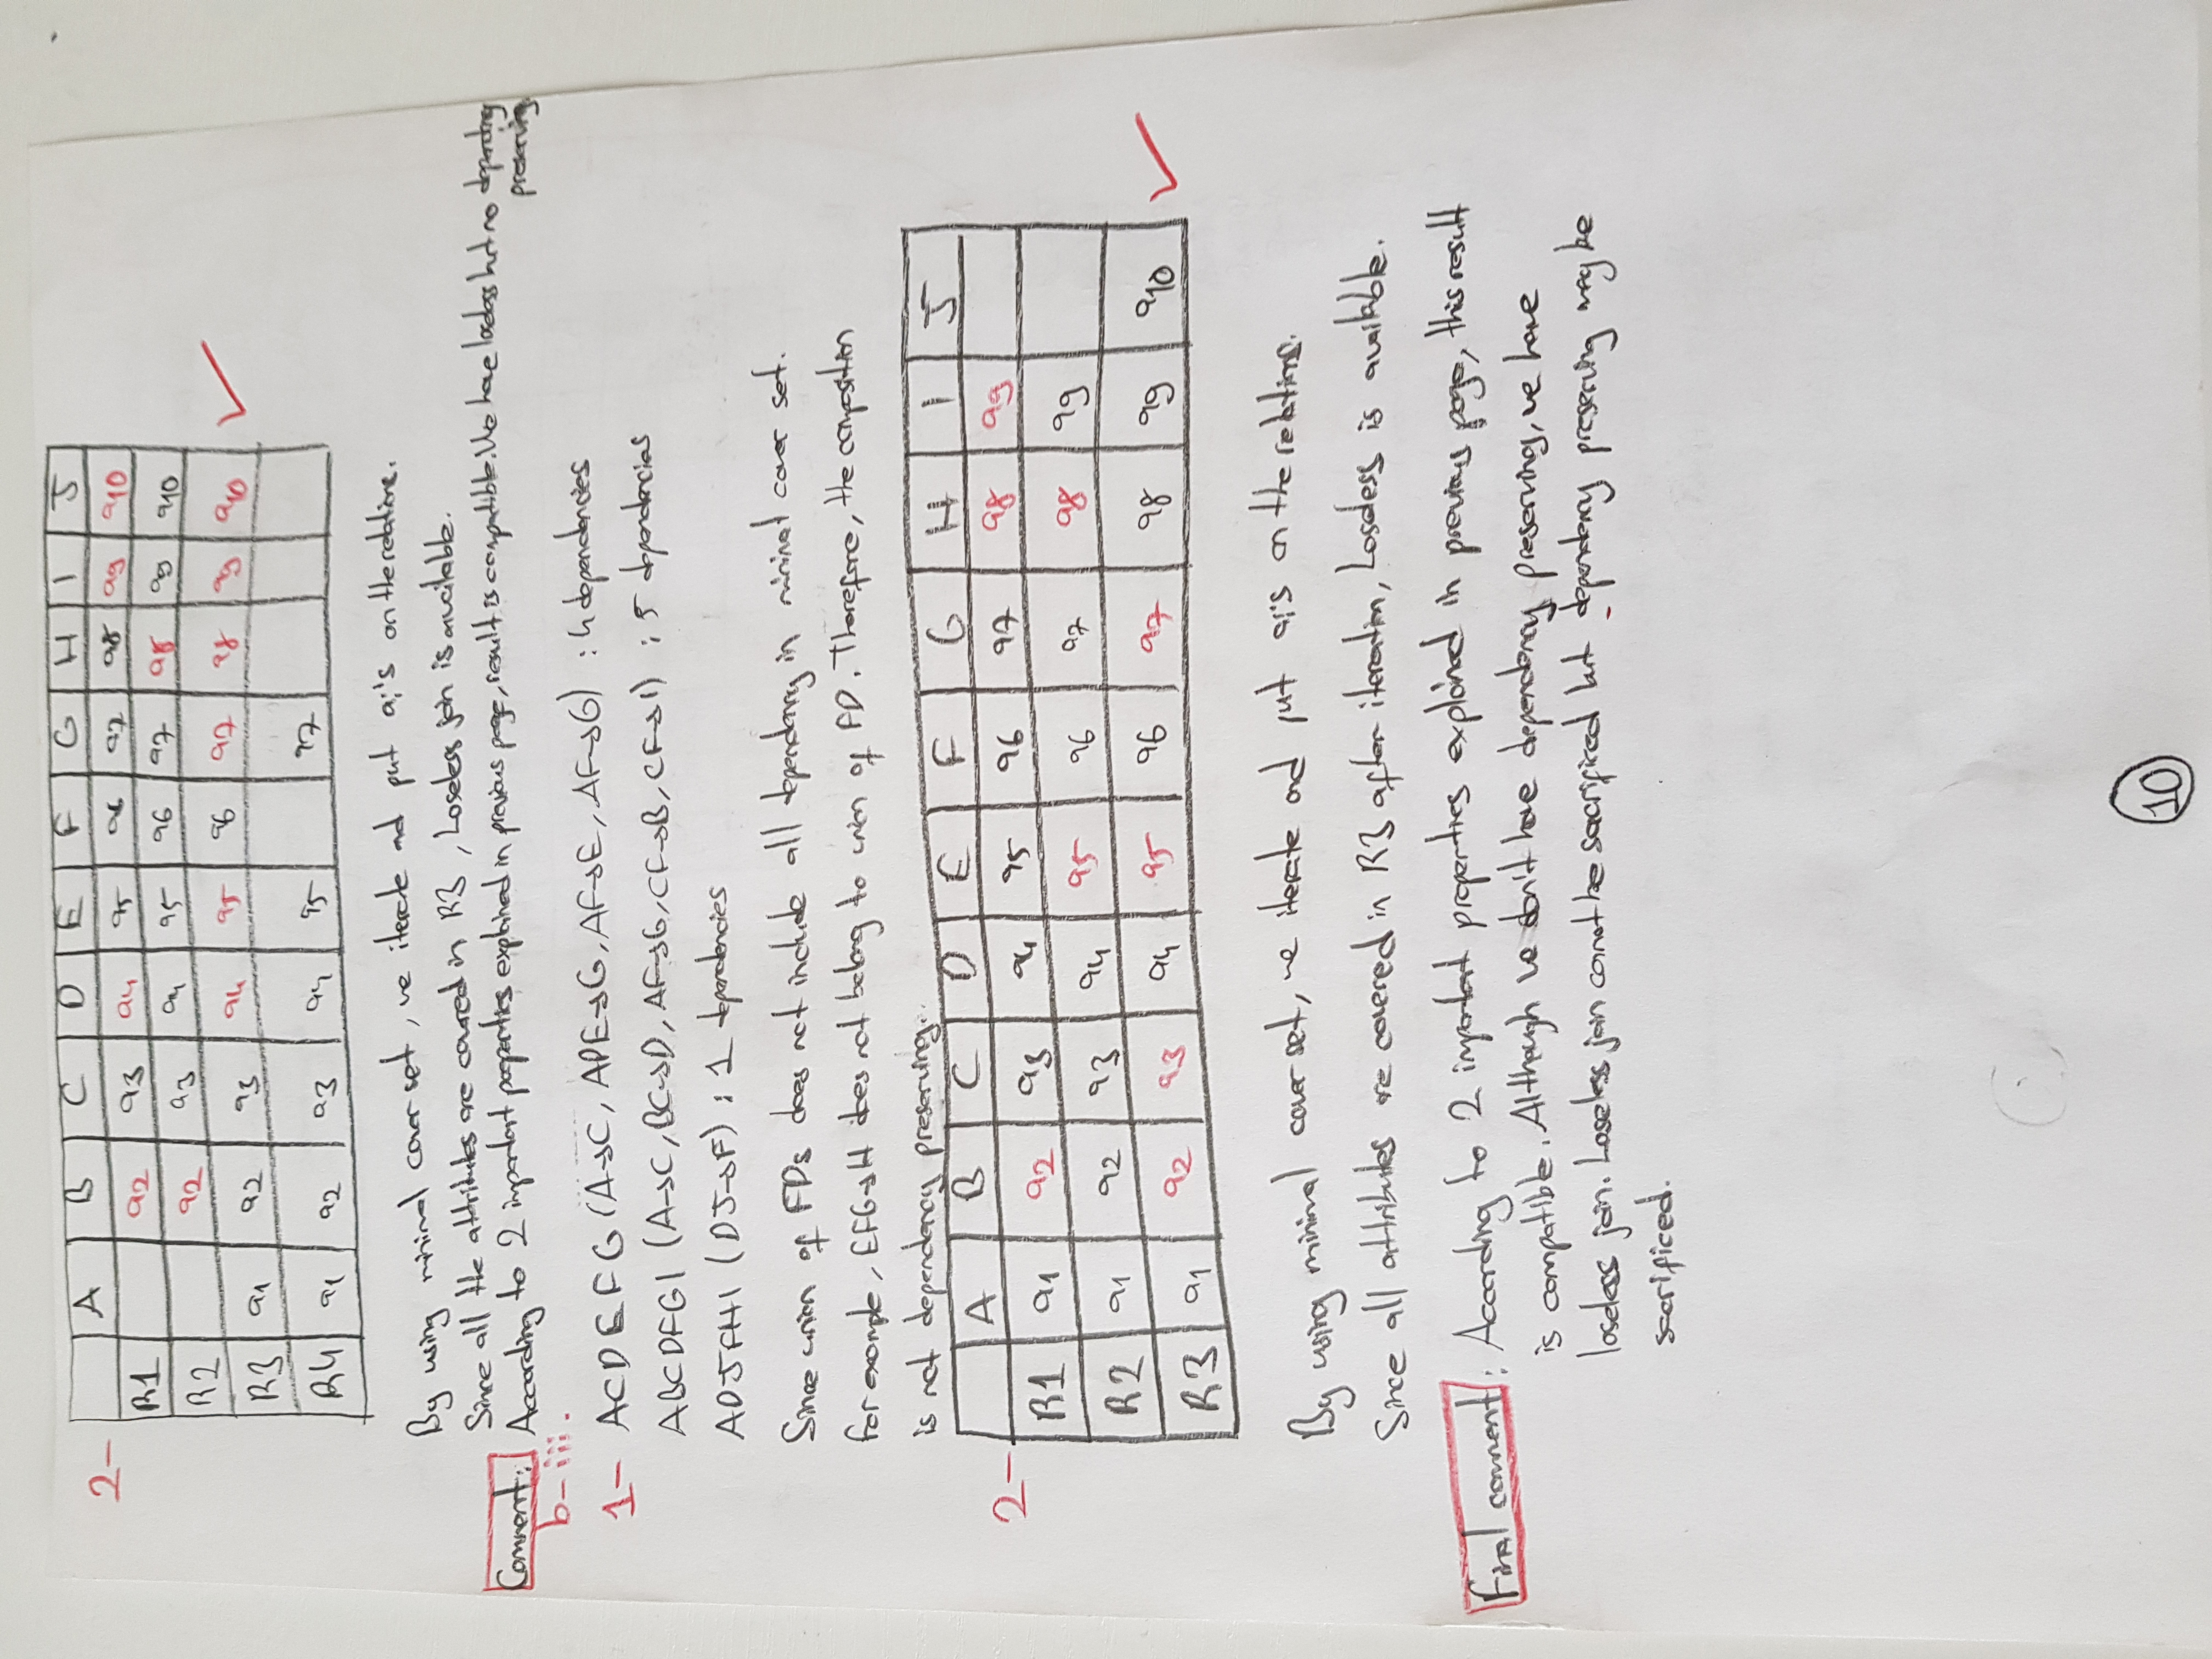 2-
A B C D E F G H I J
R1 a2 a3 a4 a5 a6 a7 a8 a9 a10
R2 a2 a3 a4 a5 a6 a7 a8 a9 a10
R3 a1 a2 a3 a4 a5 a6 a7 a8 a9 a10 ✓
R4 a1 a2 a3 a4 a5 a7
By using minimal cover set, we iterate and put ai's on the relations.
Since all the attributes are covered in R3, Loseless join is available.
Comment: According to 2 important properties explained in previous page, result is compatible. We have loseless but no dependency
preserving.
b-iii.
1- ACDEFG (A→C, ADE→G, AF→E, AF→G) : 4 dependencies
ABCDFGI (A→C, BC→D, AF→G, CF→B, CF→I) : 5 dependencies
ADJFHI (DJ→F) : 1 dependencies
Since union of FDs does not include all dependency in minimal cover set.
For example, EFG→H does not belong to union of FD. Therefore, the composition
is not dependency preserving.
2-
A B C D E F G H I J
R1 a1 a2 a3 a4 a5 a6 a7 a8 a9
R2 a1 a2 a3 a4 a5 a6 a7 a8 a9
R3 a1 a2 a3 a4 a5 a6 a7 a8 a9 a10 ✓
By using minimal cover set, we iterate and put ai's on the relations.
Since all attributes are covered in R3 after iteration, Loseless is available.
Final comment: According to 2 important properties explained in previous page, this result
is compatible. Although we don't have dependency preserving, we have
loseless join. Loseless join cannot be sacrificed but dependency preserving may be
sacrificed.
10